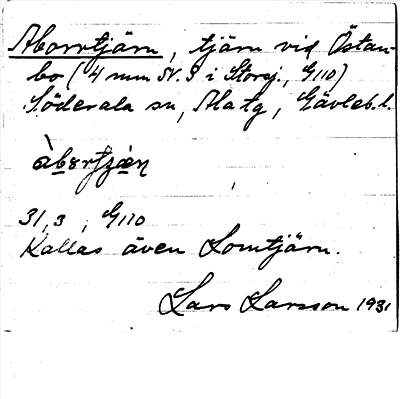 Aborrtjärn, tjärn vid Östan-
bo (4 mm SV. S i Storsj., G110)
Söderala sn, Ala tg, Gävleb. l.
àbortjæ̀n
31, 3, G110
Kallas även Lomtjärn.
Lars Larsson 1931